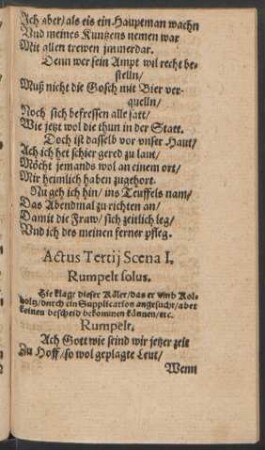 Ich aber/ als eis ein Hauptman wachn
Vnd meines Kuntzens nemen war
Mit allen trewen jmmerdar.
Denn wer sein Ampt wil recht be-
stelln/
Muß nicht die Gosch mit Bier ver-
quelln/
Noch sich befressen alle satt/
Wie jetzt wol die thun in der Statt.
Doch ist dasselb vor vnser Haut/
Ach ich het schier gered zu laut/
Möcht jemands wol an einem ort/
Mir heimlich haben zugehort.
Nu geh ich hin/ ins Teuffels nam/
Das Abendmal zu richten an/
Damit die Fraw/ sich zeitlich leg/
Vnd ich des meinen ferner pfleg.
Actus Tertij Scena I.
Rumpelt solus.
Hie klagt dieser Köler/ das er vmb Kol-
holtz/ durch ein Supplication angesucht/ aber
keinen bescheid bekommen können/ etc.
Rumpelt.
Ach Gott wie seind wir jetzer zeit
Zu Hoff/ so wol geplagte Leut/
Wenn